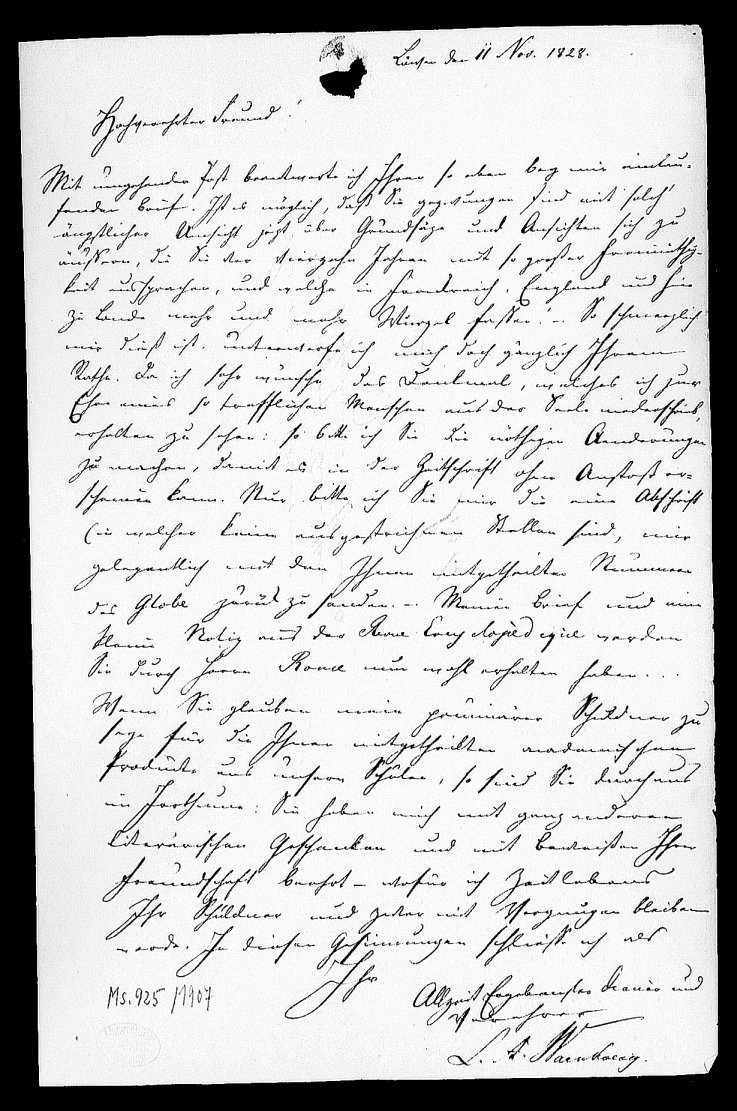 Löwen den 11 Nov. 1828.
Hochverehrter Freund!
Mit umgehender Post beantworte ich Ihren so eben bey mir einlau-
fenden Brief. Ist es möglich, daß Sie gezwungen sind mit solch
ängstlicher Umsicht jezt über Grundsäze und Ansichten sich zu
äussern, die Sie vor vierzehn Jahren mit so großer Freimüthig-
keit aussprachen, und welche in Frankreich, England und hier
zu Lande mehr und mehr Wurzel fassen! – So schmerzlich
mir dieß ist, unterwerfe ich mich doch gänzlich Ihrem
Rathe. Da ich sehr wünsche das Denkmal, welches ich zur
Ehre eines so trefflichen Menschen aus der Seele niederschrieb,
erhalten zu sehen: so bitte ich Sie die nöthigen Aenderungen
zu machen, damit es in der Zeitschrift ohne Anstoß er-
scheinen kann. Nur bitte ich Sie mir die eine Abschrift
(in welcher keine ausgestrichnen Stellen sind, mir
gelegentlich mit den Ihnen mitgetheilten Nummern
des Globe zurük zu senden. – Meinen Brief und eine
kleine Notiz aus der Revue Encyclopédique werden
Sie durch Herrn nun wohl erhalten haben...
Wenn Sie glauben mein Schuldner zu
seye für die Ihnen mitgetheilten academischen
Producte aus unsern Schulen, so sind Sie durchaus
im Irrthume: Sie haben mich mit ganz anderen
literärischen Geschenken und mit Beweisen Ihrer
Freundschaft beehrt – wofür ich Zeitlebens
Ihr Schuldner und zwar mit Vergnügen bleiben
werde. In diesen Gesinnungen schliesse ich als
Ihr
Allzeit Ergebenster Diener und
Verehrer
L. A. Warnkoenig.
Ms. 925/1907